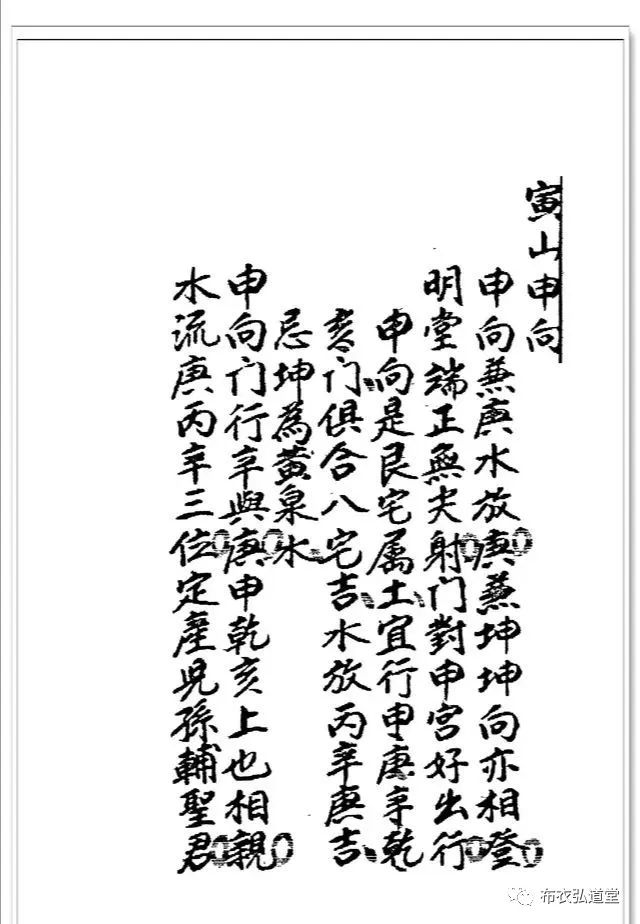 寅山申向
申向兼庚水放庚兼坤坤向亦相登
明堂端正無夫射門對申宮好出行
申向是艮宅属土宜行申庚辛乾
亥门俱合八宅吉水放丙辛庚吉
忌坤為黃泉水
申向门行辛與庚申乾亥上也相親
水流庚丙辛三位定產児孫輔聖君
布衣弘道堂